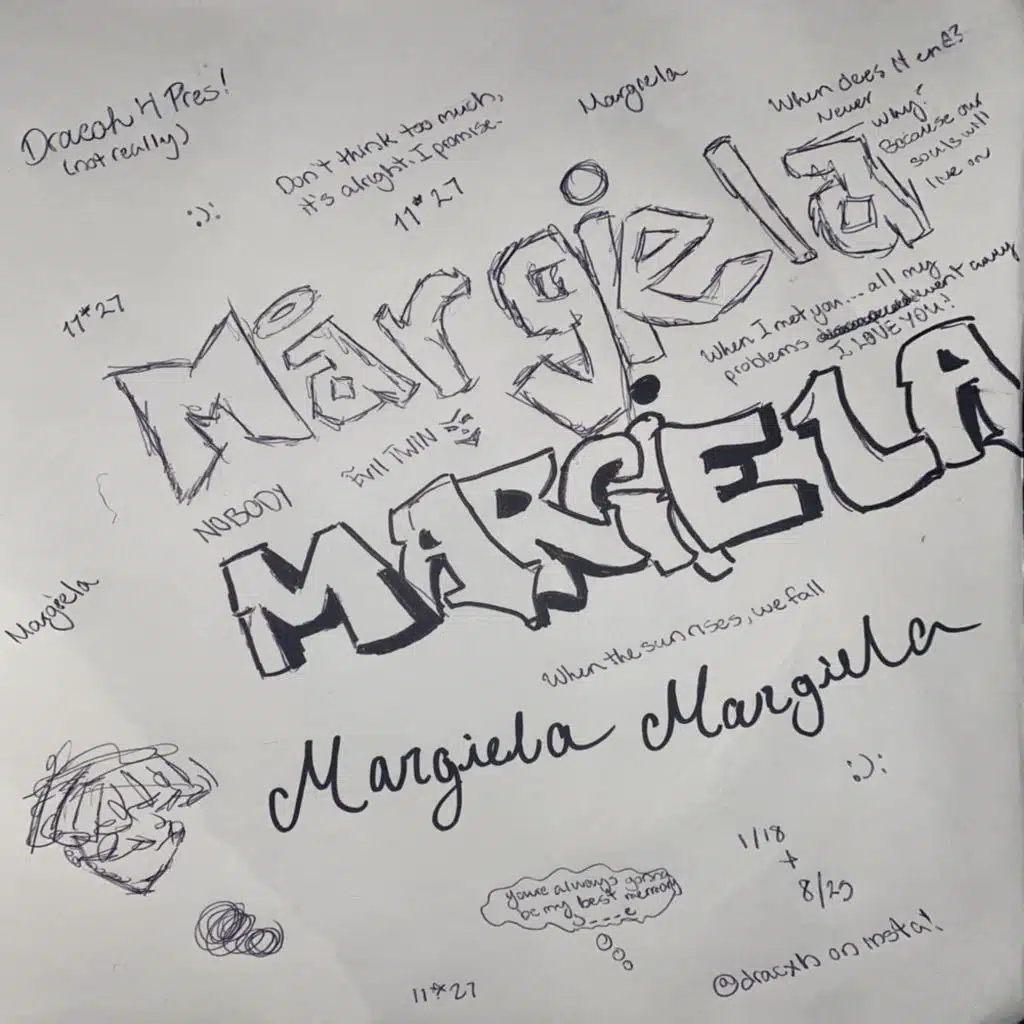 Dracoh 4 Pres!
(not really)
:):
Don't think too much,
it's alright. I promise.
11*27
Margiela
When does it end?
Never
why?
Because our
souls will
live on
11*27
Margiela
When I met you... all my
problems went away
I LOVE YOU!
EVIL TWIN
NOBODY
MARGIELA
Margiela
When the sun rises, we fall
Margiela Margiela
:):
1/18
+
8/29
you're always gonna
be my best memory
11*27
@dracxh on insta!